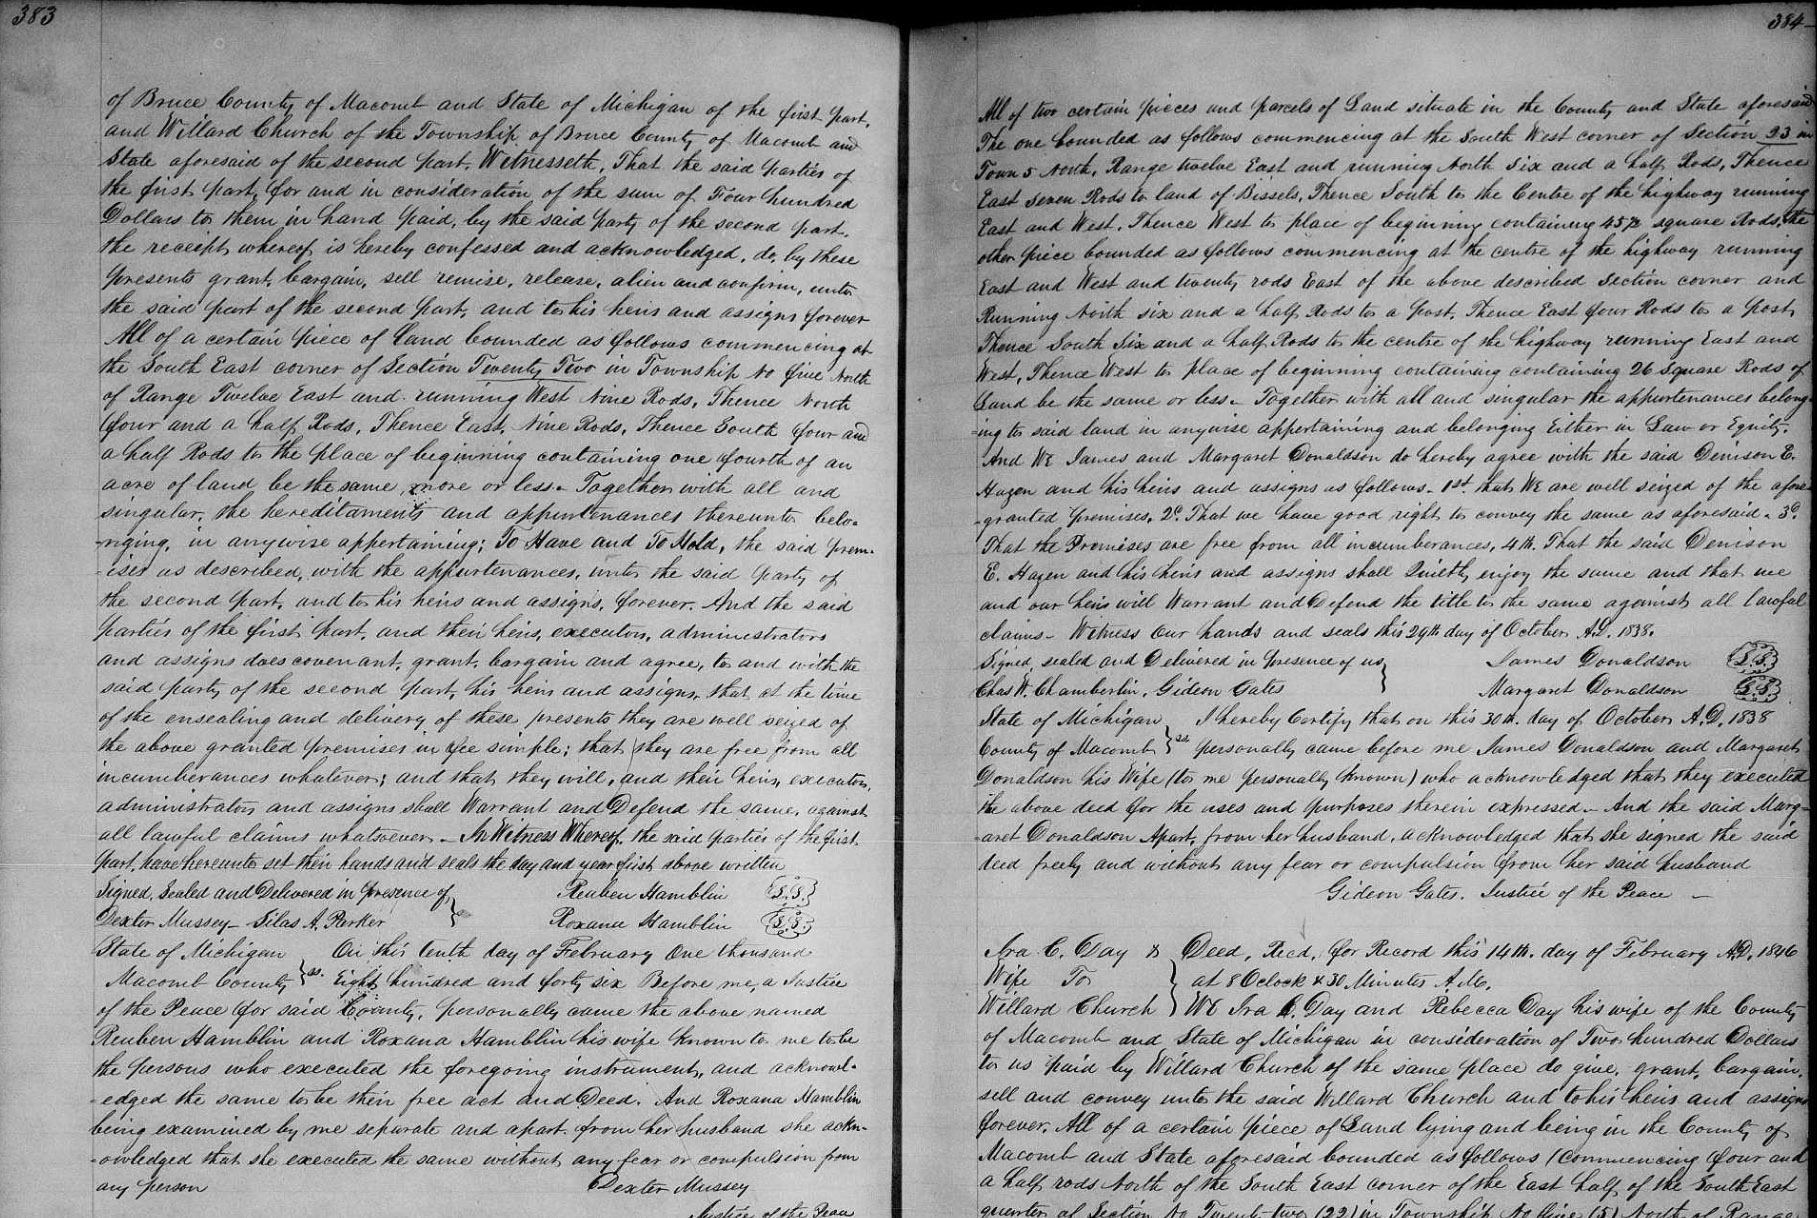 383
of Bruce County of Macomb and State of Michigan of the first part,
and Willard Church of the Township of Bruce County of Macomb and
State aforesaid of the second part. Witnesseth, That the said parties of
the first part, for and in consideration of the sum of Four hundred
Dollars to them in hand paid, by the said party of the second part,
the receipt whereof is hereby confessed and acknowledged, do, by these
presents grant, bargain, sell remise, release, alien and confirm, unto
the said part of the second part, and to his heirs and assigns forever
All of a certain piece of Land bounded as follows commencing at
the South East corner of Section Twenty Two in Township No five North
of Range Twelve East and running West Nine Rods, Thence North
four and a half Rods, Thence East, Nine Rods, Thence South four and
a half Rods to the place of beginning containing one fourth of an
acre of land be the same, more or less - Together with all and
singular, the hereditaments and appurtenances thereunto belo-
-nging, in anywise appertaining; To Have and To Hold, the said prem-
-ises as described, with the appurtenances, unto the said party of
the second part, and to his heirs and assigns, forever. And the said
parties of the first part, and their heirs, executors, administrators
and assigns does covenant, grant, bargain and agree, to and with the
said party of the second part, his heirs and assigns, that at the time
of the ensealing and delivery of these presents they are well seized of
the above granted premises in fee simple; that they are free from all
incumberances whatever; and that they will, and their heirs, executors,
administrators, and assigns shall Warrant and Defend the same, against
all lawful claims whatsoever - In Witness Whereof, the said parties of the first
part, have hereunto set their hands and seals the day and year first above written
Signed, Sealed and Delivered in presence of } Reuben Hamblin (L.S.)
Dexter Mussey - Silas A. Parker } Roxana Hamblin (L.S.)
State of Michigan } On this tenth day of February one thousand
Macomb County } ss. Eight hundred and forty six Before me, a Justice
of the Peace for said County, personally came the above named
Reuben Hamblin and Roxana Hamblin his wife known to me to be
the persons who executed the foregoing instrument, and acknowl-
-edged the same to be their free act and Deed. And Roxana Hamblin
being examined by me separate and apart from her husband she ackn-
-owledged that she executed the same without any fear or compulsion from
any person Dexter Mussey
Justice of the Peace
384
All of two certain pieces and parcels of Land situate in the County and State aforesaid
The one bounded as follows commencing at the South West corner of Section 23 in
Town 5 North, Range twelve East and running North Six and a half Rods, Thence
East seven Rods to land of Bissels, Thence South to the Centre of the highway running
East and West, Thence West to place of beginning containing 45½ square Rods, the
other piece bounded as follows commencing at the centre of the highway running
East and West and twenty rods East of the above described Section corner and
Running North six and a half Rods to a post, Thence East four Rods to a post,
Thence South Six and a half Rods to the centre of the highway running East and
West, Thence West to place of beginning containing containing 26 Square Rods of
Land be the same or less - Together with all and singular the appurtenances belong-
-ing to said land in anywise appertaining and belonging Either in Law or Equity.
And We James and Margaret Donaldson do hereby agree with the said Denison E.
Hazen and his heirs and assigns as follows - 1st. that We are well seized of the afore-
-granted premises, 2d. That we have good right to convey the same as aforesaid - 3d.
That the Premises are free from all incumberances, 4th. That the said Denison
E. Hazen and his heirs and assigns shall Quietly enjoy the same and that we
and our heirs will Warrant and Defend the title to the same against all lawful
claims - Witness Our hands and seals this 29th day of October A.D. 1838.
Signed, sealed and Delivered in presence of us } James Donaldson (L.S.)
Chas W. Chamberlin, Gideon Gates } Margaret Donaldson (L.S.)
State of Michigan } I hereby Certify that on this 30th day of October A.D. 1838
County of Macomb } ss personally came before me James Donaldson and Margaret
Donaldson his Wife (to me personally known) who acknowledged that they executed
the above deed for the uses and purposes therein expressed - And the said Marg-
-aret Donaldson Apart, from her husband, acknowledged that she signed the said
deed freely and without any fear or compulsion from her said husband
Gideon Gates. Justice of the Peace -
Ira C. Day & } Deed, Recd. for Record this 14th. day of February A.D. 1846
Wife To } at 8 Oclock & 30 Minutes A.M.
Willard Church } We Ira C. Day and Rebecca Day his wife of the County
of Macomb and State of Michigan in consideration of Two hundred Dollars
to us paid by Willard Church of the same place do give, grant, bargain,
sell and convey unto the said Willard Church and to his heirs and assigns
forever, All of a certain piece of Land lying and being in the County of
Macomb and State aforesaid bounded as follows (Commencing four and
a half rods North of the South East corner of the East half of the South East
quarter of Section No Twenty-two (22) in Township No five (5) North of Range